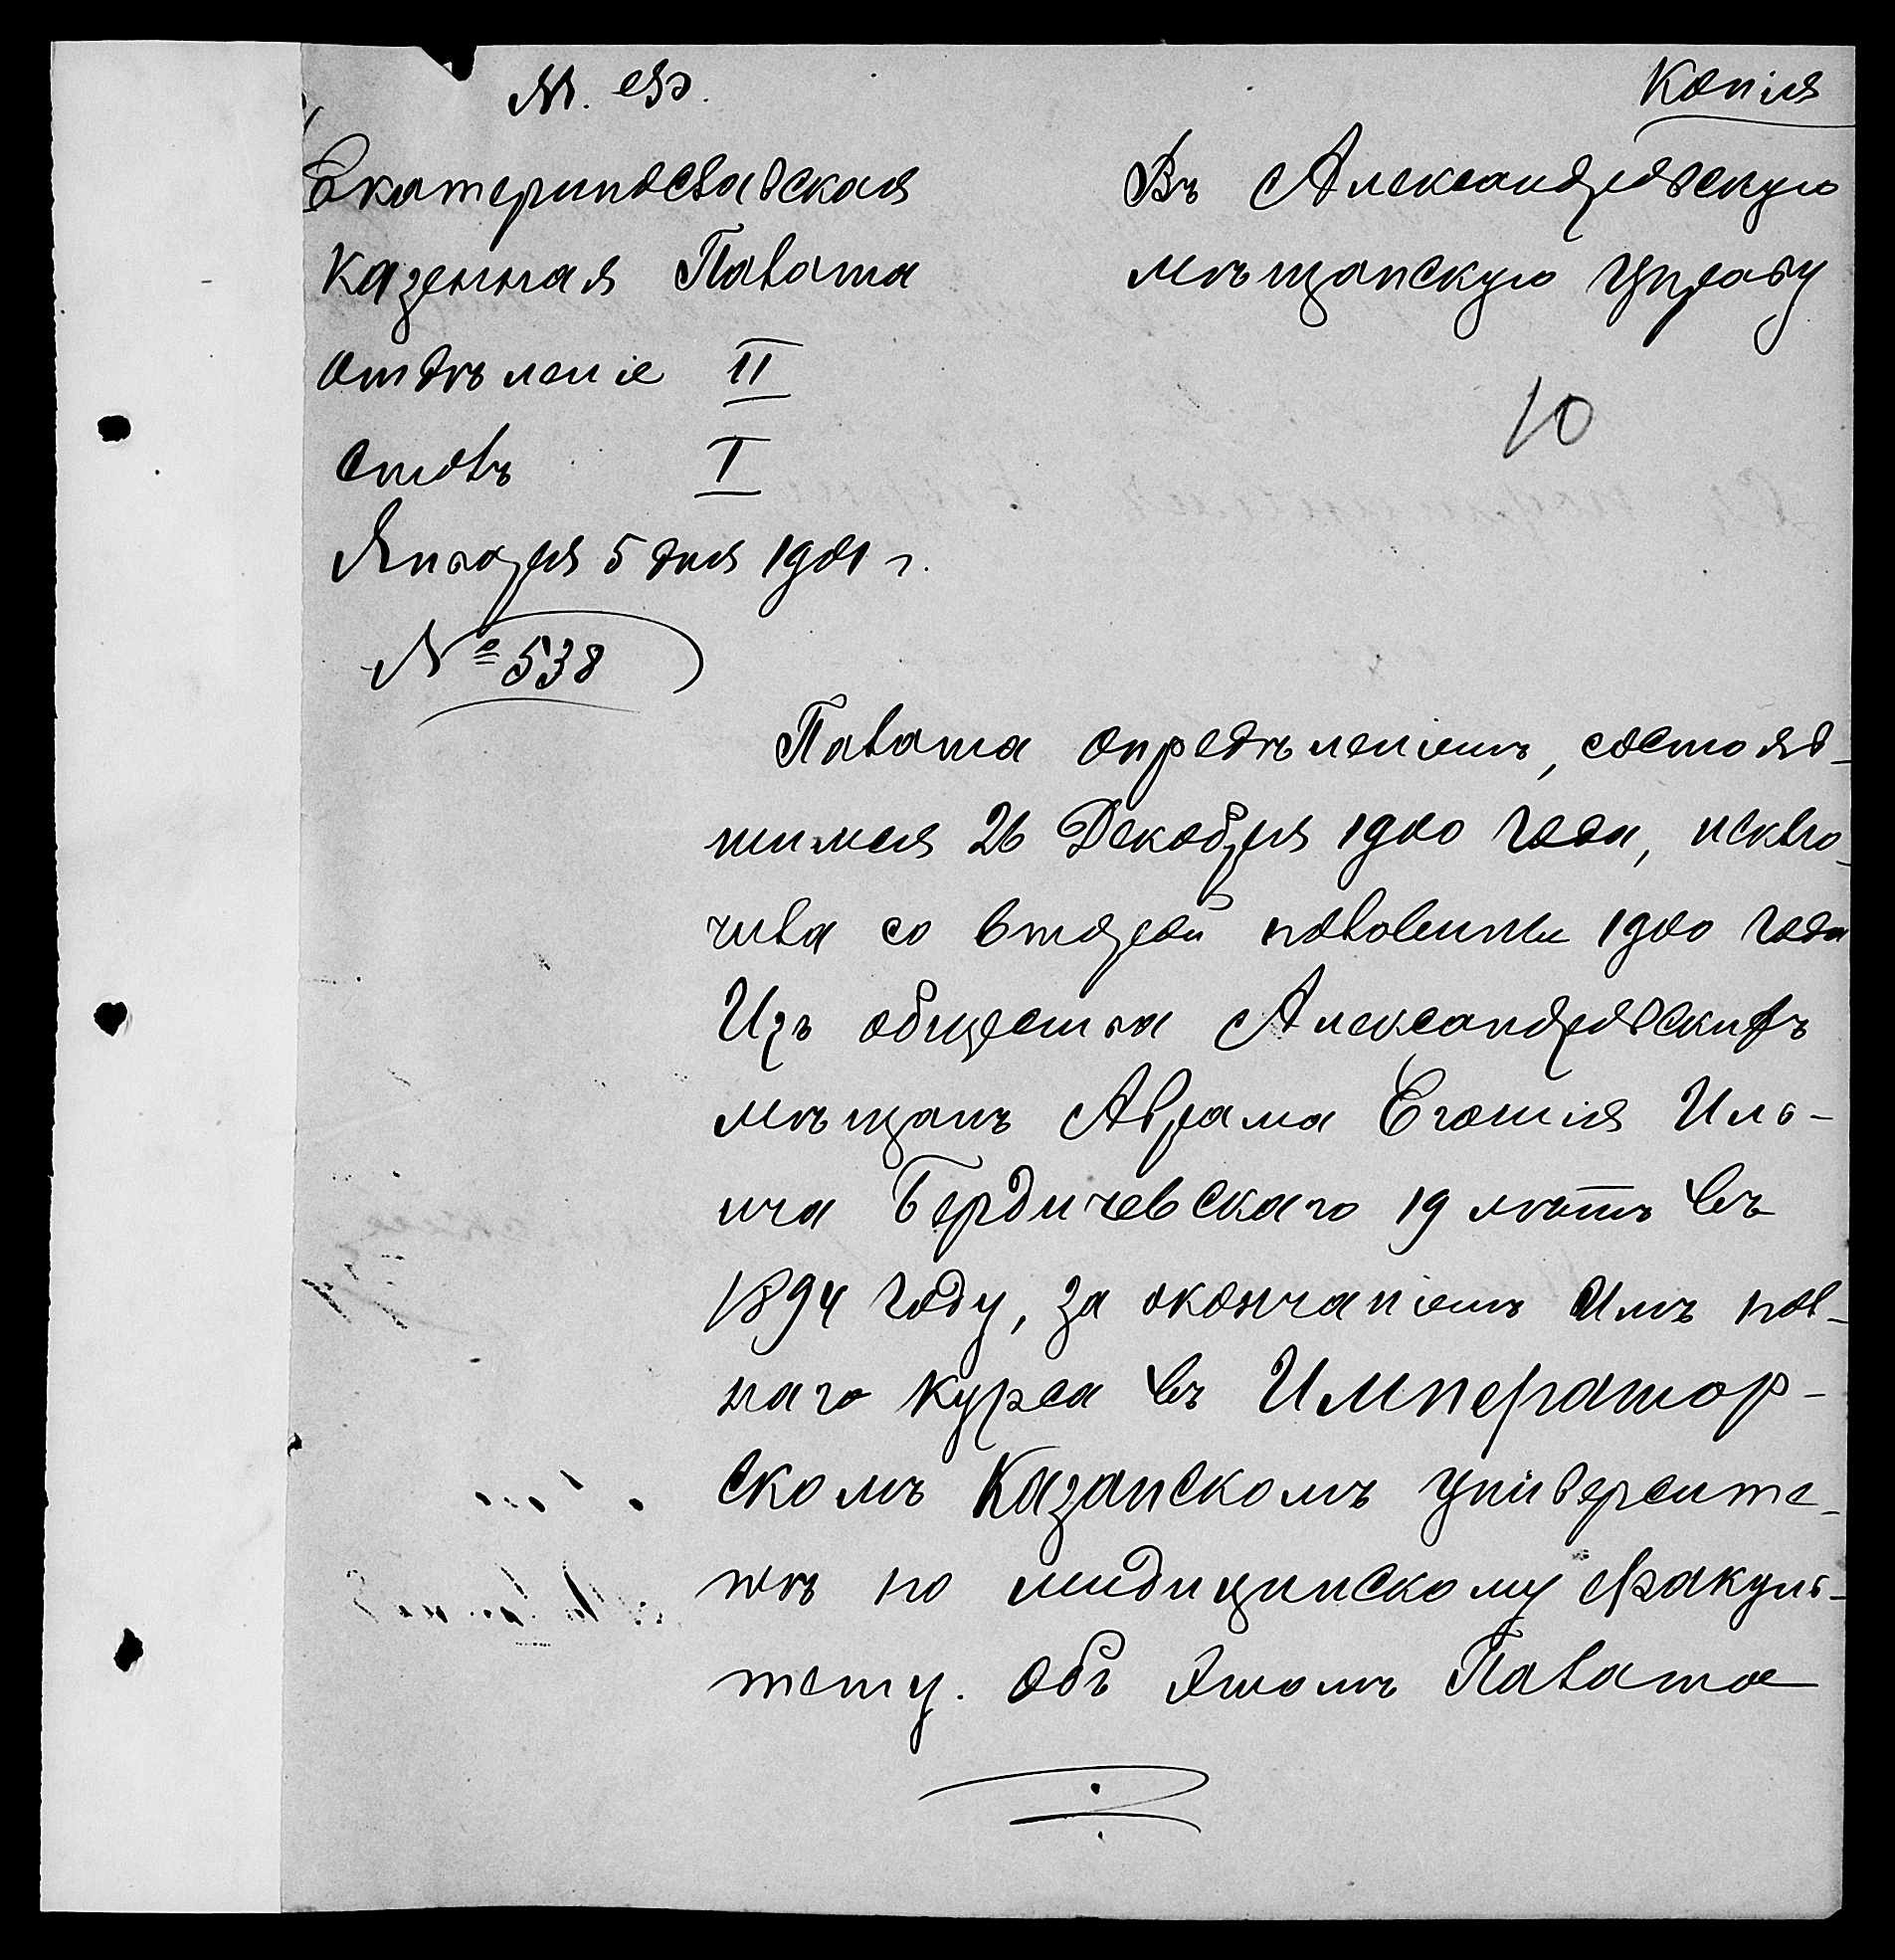 М. Ф.
Копія
Екатеринославская
Казенная Палата
Отдѣленіе II
Столъ I
Января 5 дня 1901 г.
№ 538
Въ Александровскую
мѣщанскую управу
10
Палата опредѣленіемъ, состояв-
шимся 26 Декабря 1900 года, исклю-
чила со второй половины 1900 года
Изъ общества Александровскихъ
мѣщанъ Аврама Егошія Иль-
ича Бердичевскаго 19 лѣтъ въ
1894 году, за окончаніемъ имъ пол-
наго курса въ Император-
скомъ Казанскомъ Университе-
тѣ по мидицинскому факуль-
тету. Объ этомъ Палата